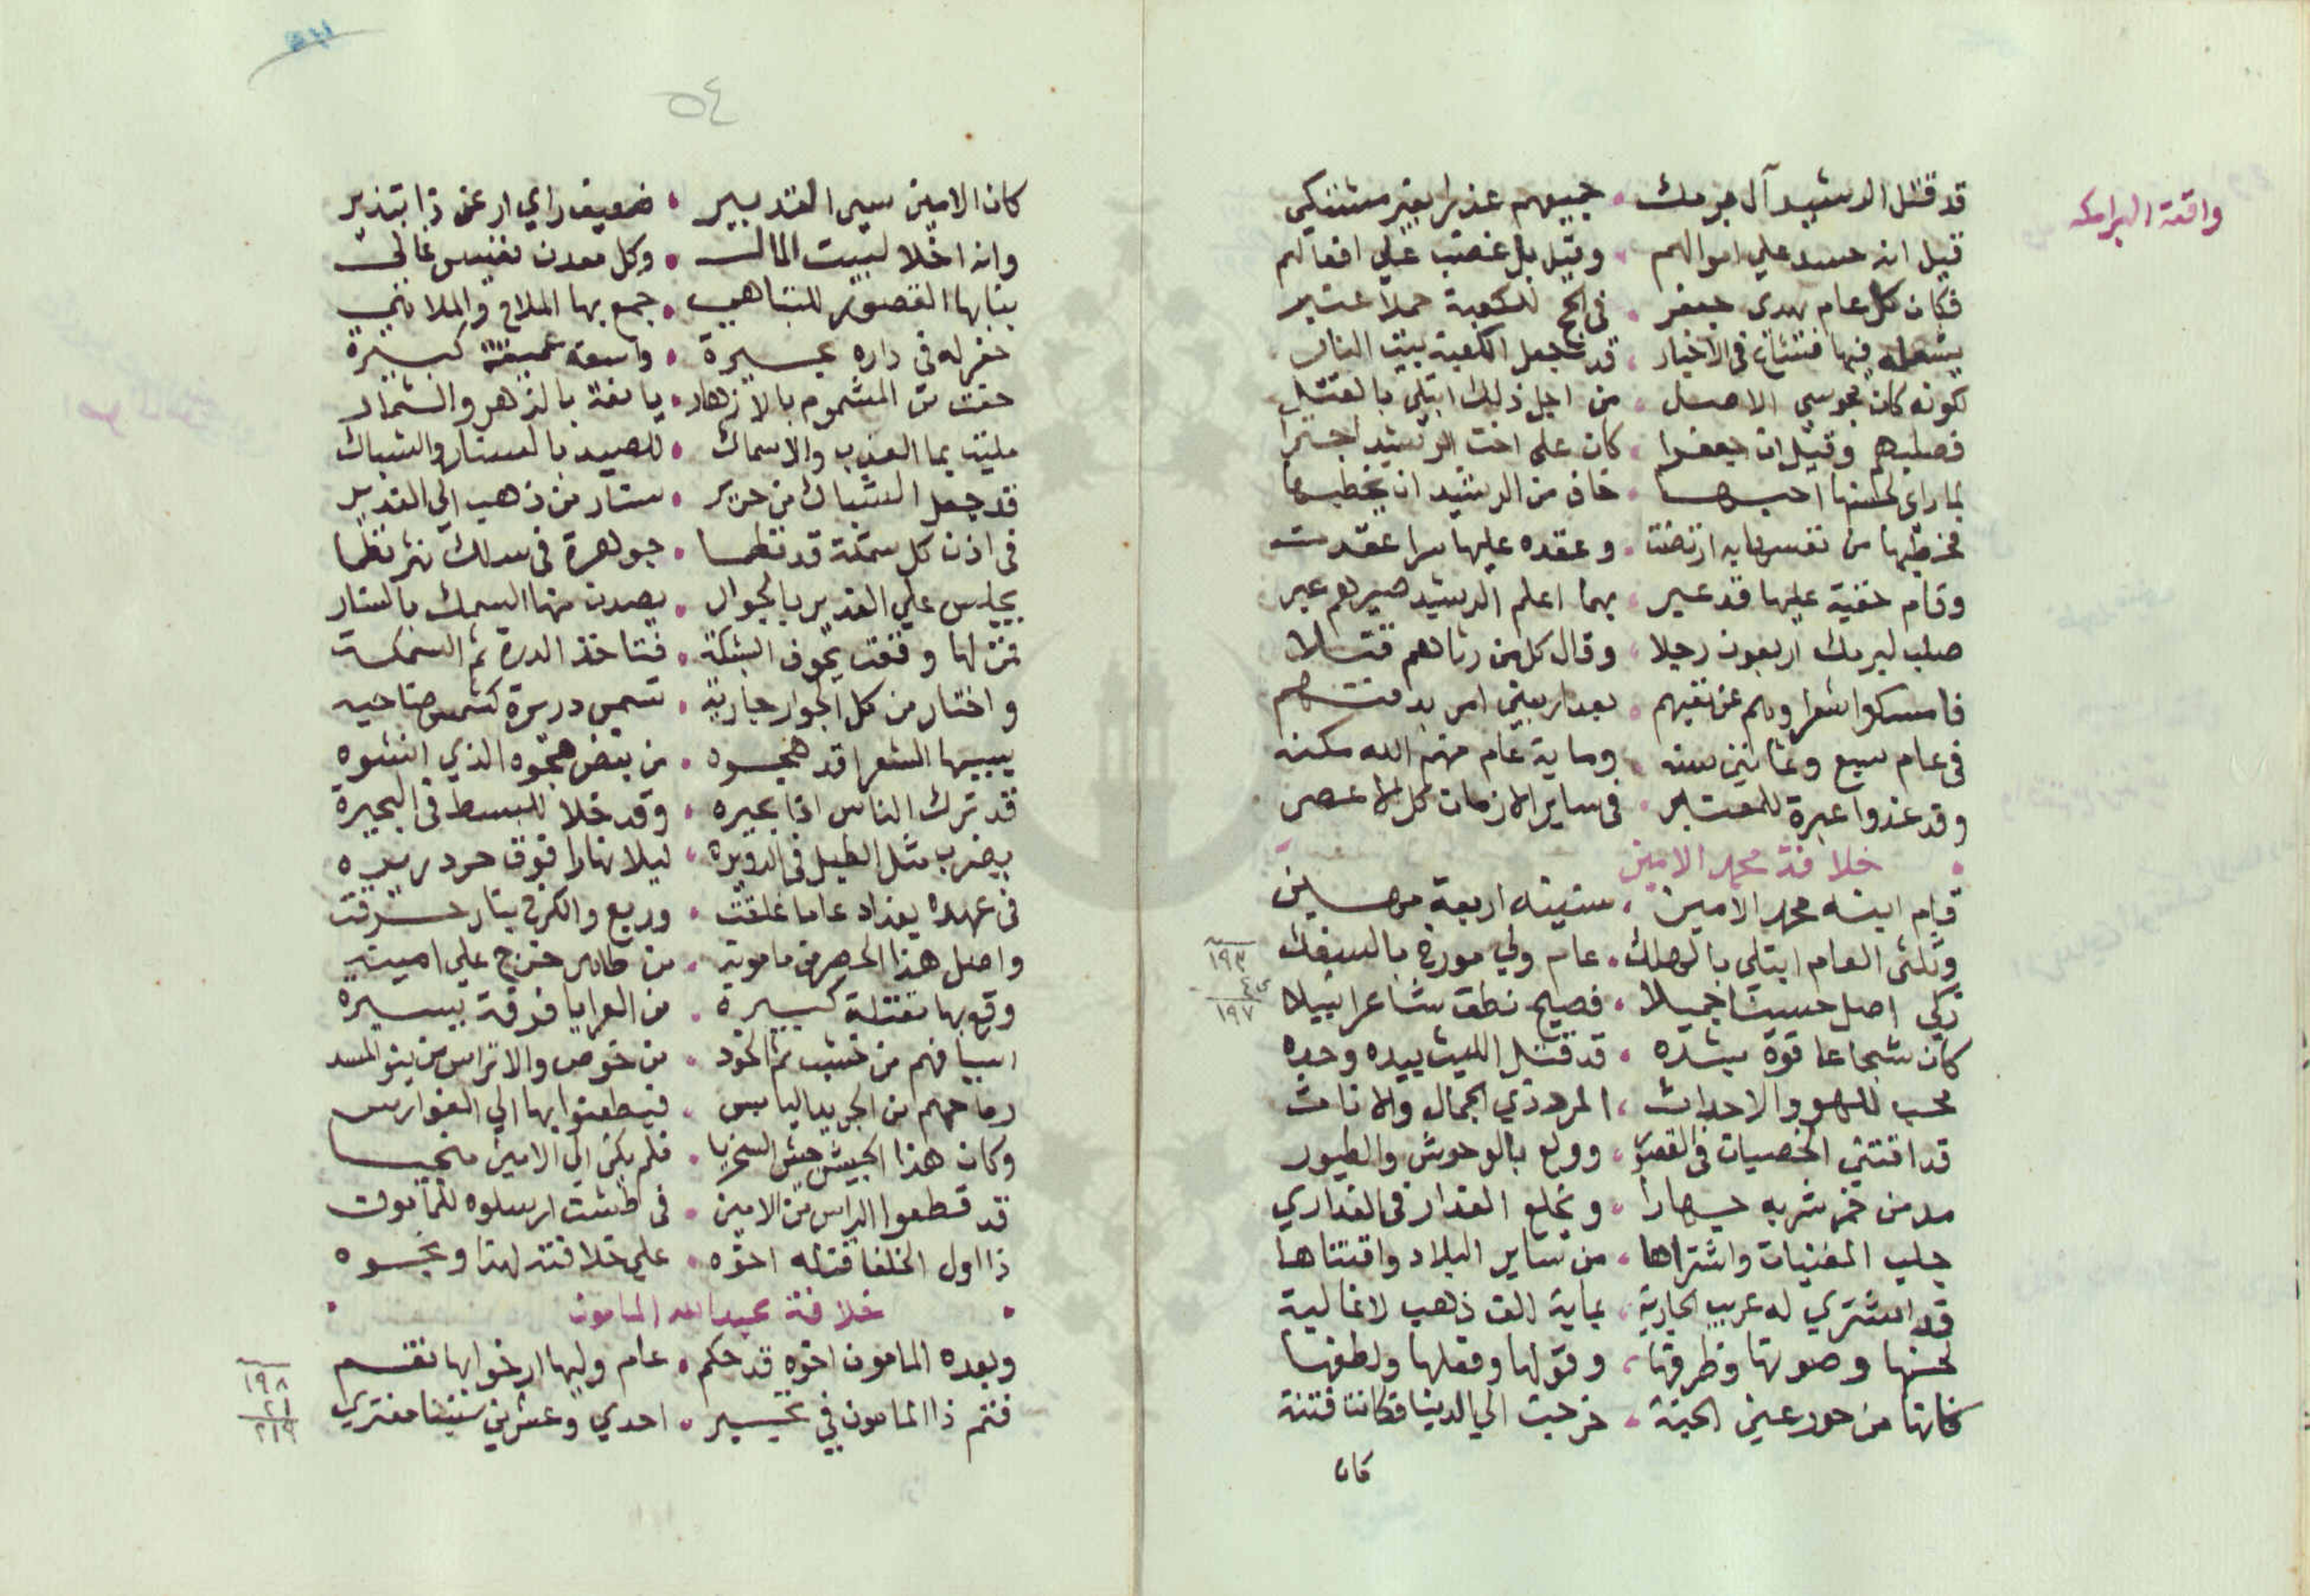 واقعة البرامكه
قد قتل الرشيد آل برمك • جميعهم عذرا بغير مشتكي
قيل انه حسد علي اموالهم • وقيل بل غضب علي افعالهم
فكان كل عام يهدي جعفر • في الحج للكعبة حملا عنبر
يشعله فيها فشاع في الاخبار • قد جعل الكعبة بيت النار
لكونه كان مجوسي الاصل • من اجل ذلك ابتلي بالقتل
فصلبهم وقيل ان جعفرا • كان علي اخت الرشيد اجترا
لما راي لحسنها احبها • خاف من الرشيد ان يخطبها
فخطبها من نفسها به ارتضت • وعقده عليها سرا عقدت
وقام خفية عليها قد عبر • بهما اعلم الرشيد صيرهم عبر
صلب لبرمك اربعون رجلا • وقال كل من رثاهم قتلا
فامسكوا شعراوهم عن نعيهم • بعد اربعين امر بدفنهم
في عام سبع وثمانين سنه • وماية عام منهم الله مكنه
وقد غدوا عبرة للمعتبر • في ساير الازمان كل الاعصر
خلافة محمد الامين
قام ابنه محمد الامين • سنينه اربعة
وثلثي العام ابتلي بالهلك • عام ولي مورخ بالسفك
١٩٣
٤
١٩٧
زكي اصل حسينا جميلا • فصيح نطق شاعرا نبيلا
كان شجاعا قوة بشده • قد قتل الليث بيده وحده
محب للهو والاحداث • المرد ذي الجمال والاناث
قد اقتني الخصيان في القصور • وولع بالوحوش والطيور
مدمن خمر شربه جهارا • ويخلع العذار في العذاري
جلب المغنيات واشتراها • من ساير البلاد واقتناها
قد اشتري له عريب الجارية • بماية الف ذهب لا غالية
لحسنها وصوتها وظرفها • وقولها وفعلها ولطفها
كانها من حور عين الجنة • خرجت الي الدنيا فكانت فتنة
كان
٥٤
كان الامين سيي التدبير • ضعيف راي ارعن ذا تبذير
وانه اخلا لبيت المال • وكل معدن نفيس غالي
بنا بها القصور للتباهي • جمع بها الملاح والملاهي
حفر له في داره بحيرة • واسعة عميقة كبيرة
حفت من المشموم بالازهار • يانعة بالزهر والثمار
مليت بما العذب والاسماك • للصيد بالسنار والشباك
قد جعل الشباك من حرير • سنار من ذهب الي الغدير
في اذن كل سمكة قد نظما • جوهرة في سلك نثر نظما
يجلس علي الغدير بالجوار • يصدن منها السمك بالسنار
فمن لها وقعت بجوف الشبكة • فتاخذ الدرة ثم السمكة
واختار من كل الجوار جارية • تسمي درة كشمس ضاحيه
بسببها الشعرا قد هجوه • من بعض هجوه الذي انشوه
قد ترك الناس اتا بعبره • وقد خلا للبسط في البحيرة
يضرب مثل الطبل في الدويره • ليلا نهارا فوق حر دريره
في عهده بغداد عاما غلقت • وربع والكرخ بنار حرقت
واصل هذا الحصر من مامونه • من طاهر خرج علي امينه
وقع بها مقتلة كبيرة • من العرايا فرقة يسيرة
اسيافهم من خشب ثم الخود • من خوص والاتراس من
رماحهم من الجريد اليابس • فيطعنوا بها الي الفوارس
وكان هذا الجيش جيش السخريا • فلم يكن الي الامين منجيا
قد قطعوا الراس من الامين • في طشت ارسلوه للمامون
ذا اول الخلفا قتله اخوه • علي خلافة لهذا ونحوه
خلافة عبد الله المامون
وبعده المامون اخوه قد حكم • عام وليها ارخوا بها نقسم
فتم ذا المامون في تخيير • احدي وعشرين سنينا مفتري
١٩٨
٢١
٢١٩